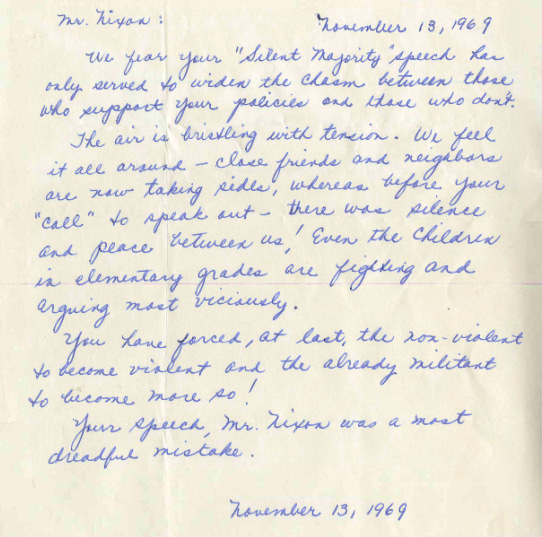 Mr. Nixon: November 13, 1969
We fear your "Silent Majority" speech has
only served to widen the chasm between those
who support your policies and those who don't.
The air is bristling with tension. We feel
it all around - close friends and neighbors
are now taking sides, whereas before your
"call" to speak out - there was silence
and peace between us! Even the children
in elementary grades are fighting and
arguing most viciously.
You have forced, at last, the non-violent
to become violent and the already militant
to become more so!
Your speech, Mr. Nixon was a most
dreadful mistake.
November 13, 1969